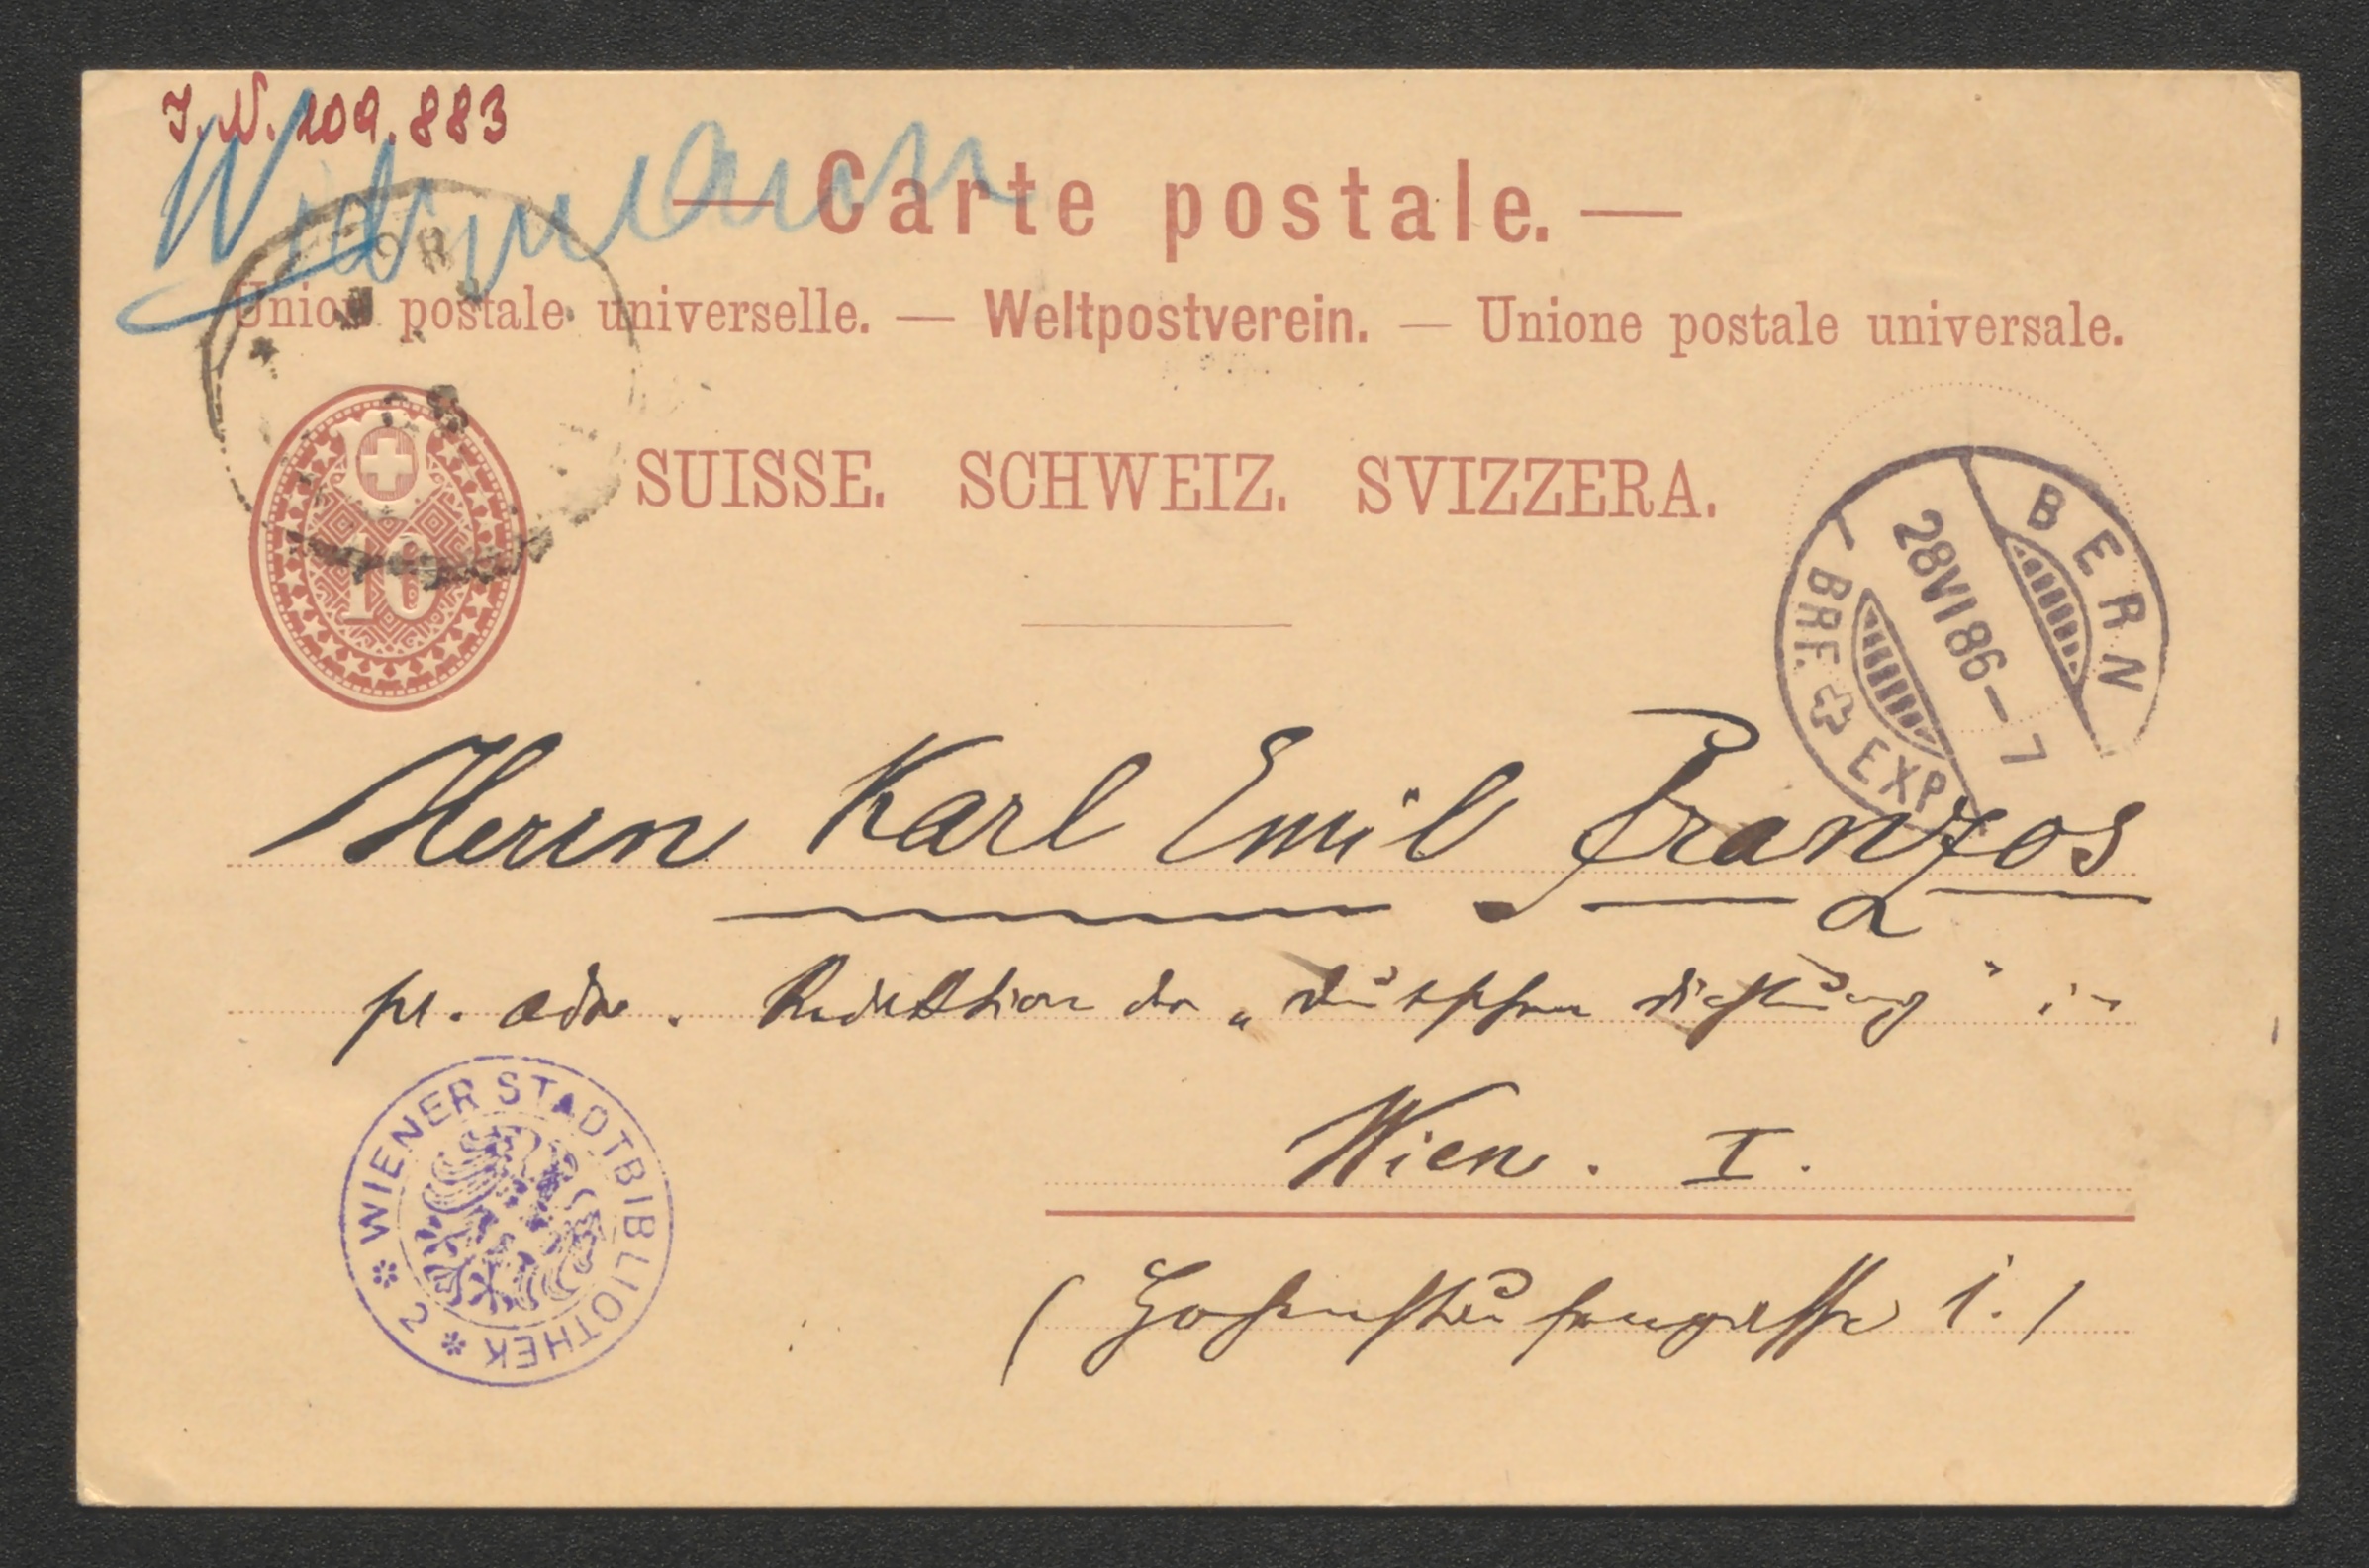 I.N. 109.883
Widmann
— Carte postale. —
Union postale universelle. — Weltpostverein. — Unione postale universale.
SUISSE. SCHWEIZ. SVIZZERA.
10
BERN
28 VI 86 – 7
BRF. EXP.
Herrn Karl Emil Franzos
pr. adr. Redaktion der „Deutschen Dichtung" in
Wien. I.
(Hohenstaufengasse 1.)
WIENER STADTBIBLIOTHEK
2